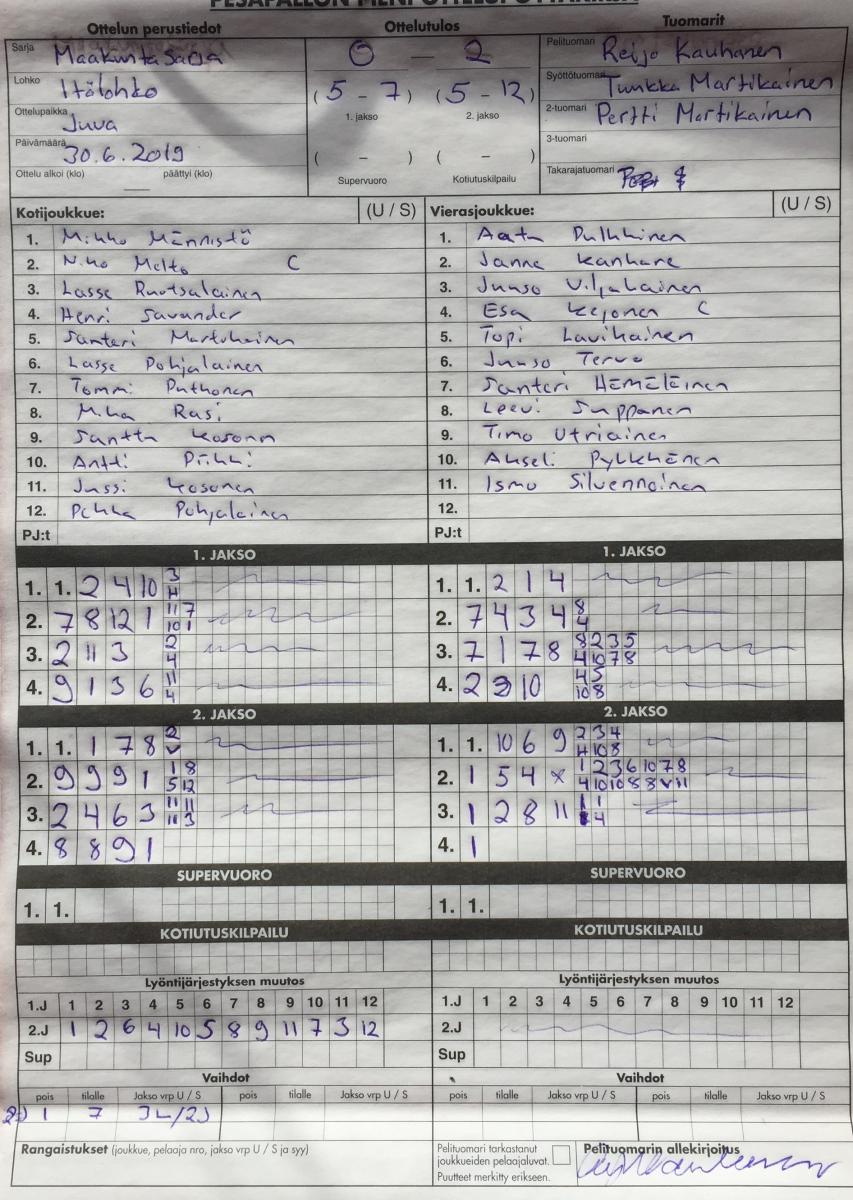 Ottelun perustiedot
Ottelutulos
Tuomarit
Sarja Maakuntasarja
0 — 2
Pelituomari Reijo Kauhanen
Lohko Itälohko
(5 - 7) (5 - 12)
Syöttötuomari Tuukka Martikainen
1. jakso 2. jakso
Ottelupaikka Juva
2-tuomari Pertti Martikainen
Päivämäärä 30.6.2019
( - ) ( - )
3-tuomari
Ottelu alkoi (klo) päättyi (klo)
Supervuoro Kotiutuskilpailu
Takarajatuomari
Kotijoukkue: (U / S)
1. Mikko Männistö
2. Niko Melto C
3. Lasse Ruotsalainen
4. Henri Savander
5. Santeri Martikainen
6. Lasse Pohjalainen
7. Tommi Puthonen
8. Mika Rasi
9. Santtu Kosonen
10. Antti Pirhi
11. Jussi Kosonen
12. Pekka Pohjalainen
PJ:t
Vierasjoukkue: (U / S)
1. Aatu Pulkkinen
2. Janne Kanhane
3. Juuso Viljakainen
4. Esa Keijonen C
5. Topi Lavikainen
6. Juuso Tervo
7. Santeri Hämäläinen
8. Leevi Suppanen
9. Timo Utriainen
10. Akseli Pylkkänen
11. Ismo Silvennoinen
12.
PJ:t
1. JAKSO
1. 1. 2 4 10 3
H
2. 7 8 12 1 11 7
10 1
3. 2 11 3 2
4
4. 9 1 3 6 11
4
1. JAKSO
1. 1. 2 1 4
2. 7 4 3 4 8
4
3. 7 1 7 8 8 2 3 5
4 10 7 8
4. 2 10 4 5
10 8
2. JAKSO
1. 1. 1 7 8 2
V
2. 9 9 9 1 1 8
5 12
3. 2 4 6 3 11 11
11 3
4. 8 8 9 1
2. JAKSO
1. 1. 10 6 9 2 3 4
H 10 8
2. 1 5 4 x 1 2 3 6 10 7 8
4 10 10 8 8 V 11
3. 1 2 8 11 1 1
4
4. 1
SUPERVUORO
1. 1.
SUPERVUORO
1. 1.
KOTIUTUSKILPAILU
KOTIUTUSKILPAILU
Lyöntijärjestyksen muutos
1.J 1 2 3 4 5 6 7 8 9 10 11 12
2.J 1 2 6 4 10 5 8 9 11 7 3 12
Sup
Lyöntijärjestyksen muutos
1.J 1 2 3 4 5 6 7 8 9 10 11 12
2.J
Sup
Vaihdot
pois tilalle Jakso vrp U / S pois tilalle Jakso vrp U / S
1 7 3L/2J
Vaihdot
pois tilalle Jakso vrp U / S pois tilalle Jakso vrp U / S
Rangaistukset (joukkue, pelaaja nro, jakso vrp U / S ja syy)
Pelituomari tarkastanut
joukkueiden pelaajaluvat.
Puutteet merkitty erikseen.
Pelituomarin allekirjoitus